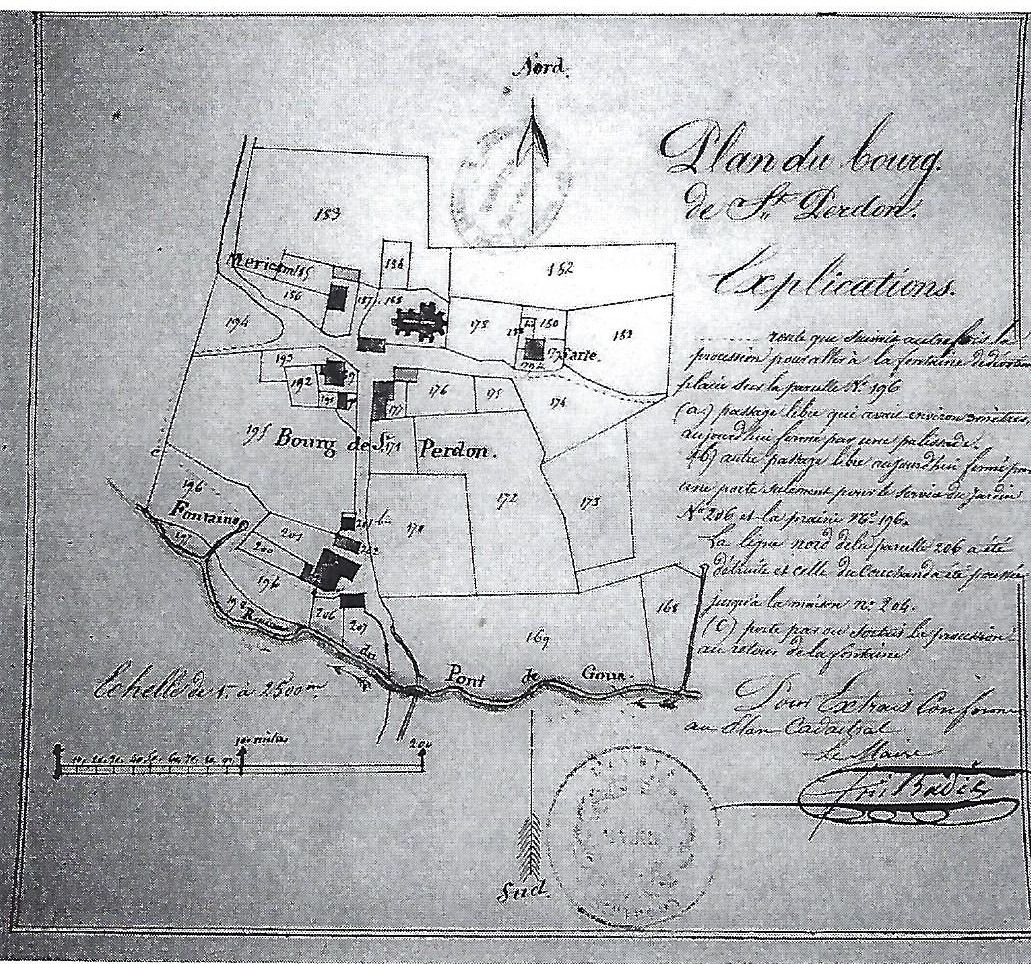 Nord.
Plan du bourg.
de St. Perdon.
Explications.
route que suivait autrefois la
procession pour aller à la fontaine
placée sur la parcelle No. 196
(a) passage libre qui avait environ 3 mètres,
aujourd'hui fermé par une palissade.
(b) autre passage libre aujourd'hui fermé par
une porte seulement pour le service du jardin
No. 206 et la prairie No. 196.
La ligne nord de la parcelle 206 a été
détruite et celle du Couchant a été poussée
jusqu'à la maison no. 204.
(C) porte par où sortait la procession
au retour de la fontaine
Pour Extrait Conforme
au Plan Cadastral
Le Maire
183
184
182
185
186
187
188
194
178
180
179
Sarte.
193
192
176
175
174
177
195
Bourg de St. Perdon.
171
172
173
170
196
Fontaine
201 bis
202
201
200
197
196
198
Ruisseau
206
207
du
Pont de Goua.
169
168
Echelle de 1m à 2500m
100 mètres
200
Sud.